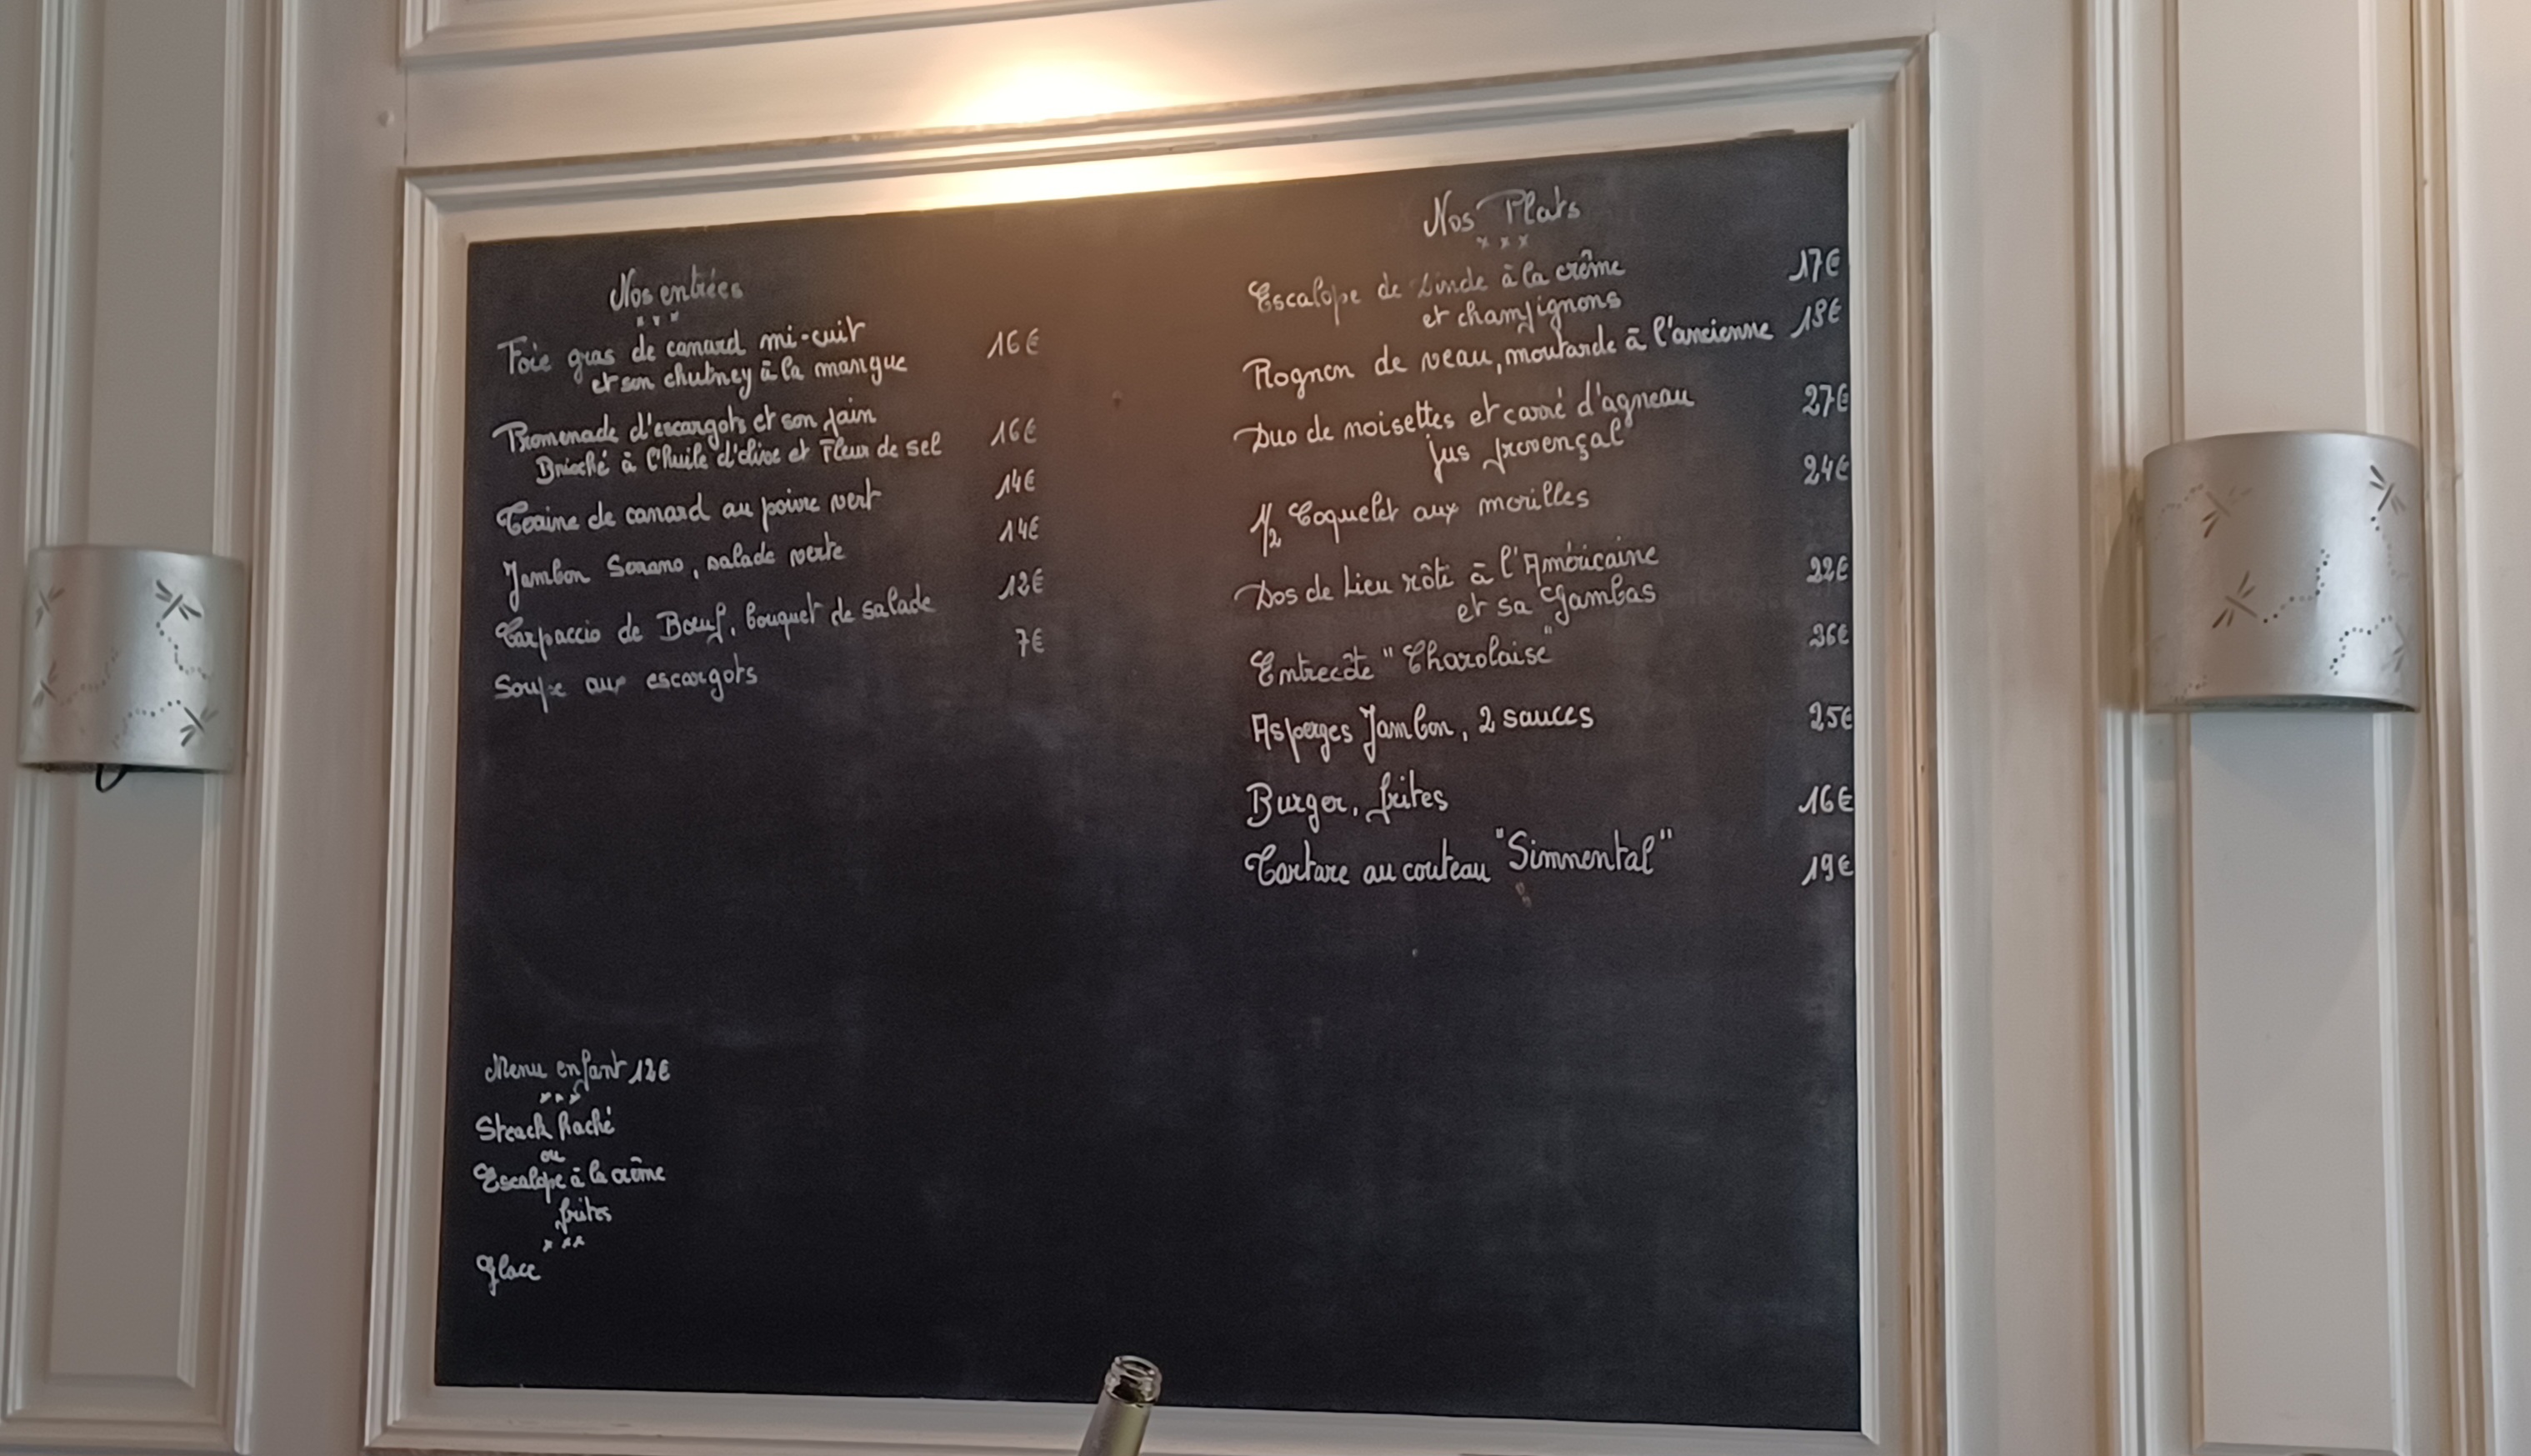 Nos entrées
x x x
Foie gras de canard mi-cuit 16€
et son chutney à la mangue
Promenade d'escargots et son pain 16€
Brioché à l'huile d'olive et Fleur de sel
Terrine de canard au poivre vert 14€
Jambon Serrano, salade verte 14€
Carpaccio de Bœuf, bouquet de salade 12€
Soupe aux escargots 7€
Menu enfant 12€
x x x
Steack haché
ou
Escalope à la crème
frites
x x x
Glace
Nos Plats
x x x
Escalope de dinde à la crème 17€
et champignons
Rognon de veau, moutarde à l'ancienne 18€
Duo de noisettes et carré d'agneau 27€
jus provençal
1/2 Coquelet aux morilles 24€
Dos de Lieu rôti à l'Américaine 22€
et sa Gambas
Entrecôte "Charolaise" 26€
Asperges Jambon, 2 sauces 25€
Burger, frites 16€
Tartare au couteau "Simmental" 19€